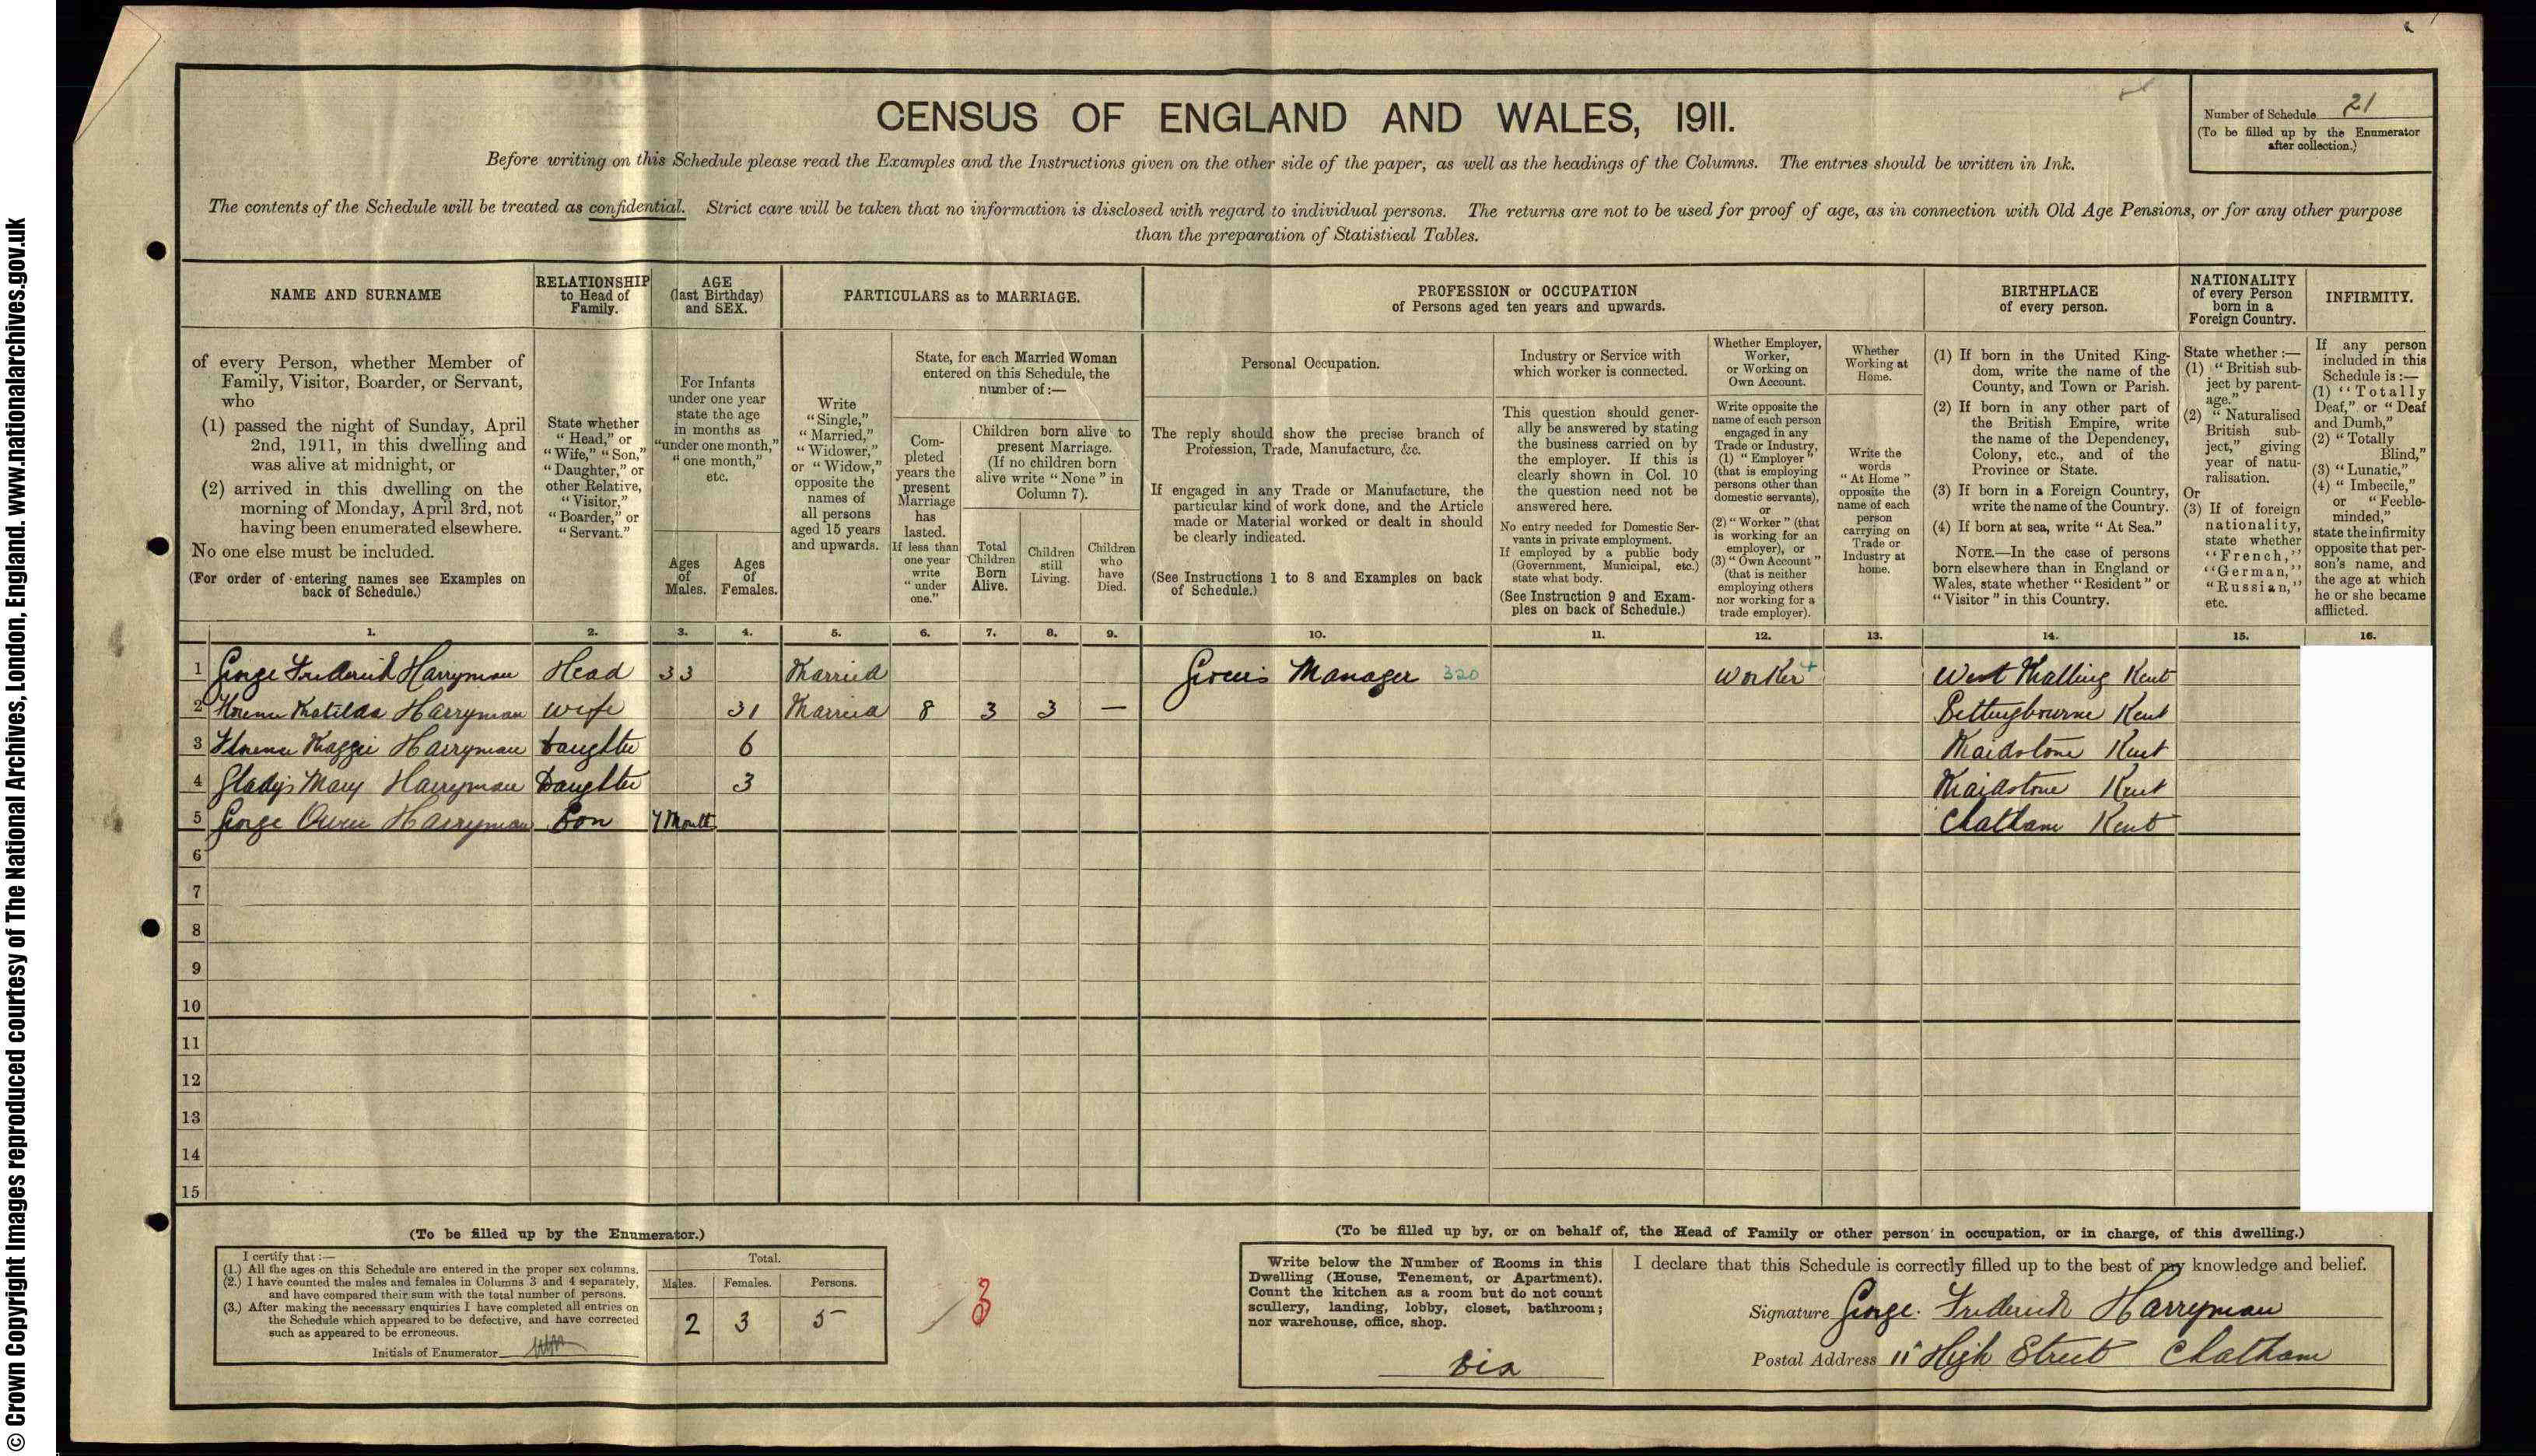 © Crown Copyright Images reproduced courtesy of The National Archives, London, England. www.nationalarchives.gov.uk
CENSUS OF ENGLAND AND WALES, 1911.
Number of Schedule 21
(To be filled up by the Enumerator
after collection.)
Before writing on this Schedule please read the Examples and the Instructions given on the other side of the paper, as well as the headings of the Columns. The entries should be written in Ink.
The contents of the Schedule will be treated as confidential. Strict care will be taken that no information is disclosed with regard to individual persons. The returns are not to be used for proof of age, as in connection with Old Age Pensions, or for any other purpose
than the preparation of Statistical Tables.
NAME AND SURNAME
of every Person, whether Member of
Family, Visitor, Boarder, or Servant,
who
(1) passed the night of Sunday, April
2nd, 1911, in this dwelling and
was alive at midnight, or
(2) arrived in this dwelling on the
morning of Monday, April 3rd, not
having been enumerated elsewhere.
No one else must be included.
(For order of entering names see Examples on
back of Schedule.)
RELATIONSHIP
to Head of
Family.
State whether
"Head," or
"Wife," "Son,"
"Daughter," or
other Relative,
"Visitor,"
"Boarder," or
"Servant."
AGE
(last Birthday)
and SEX.
For Infants
under one year
state the age
in months as
"under one month,"
"one month,"
etc.
Ages
of
Males.
Ages
of
Females.
PARTICULARS as to MARRIAGE.
Write
"Single,"
"Married,"
"Widower,"
or "Widow,"
opposite the
names of
all persons
aged 15 years
and upwards.
State, for each Married Woman
entered on this Schedule, the
number of:—
Com-
pleted
years the
present
Marriage
has
lasted.
If less than
one year
write
"under
one."
Children born alive to
present Marriage.
(If no children born
alive write "None" in
Column 7).
Total
Children
Born
Alive.
Children
still
Living.
Children
who
have
Died.
PROFESSION or OCCUPATION
of Persons aged ten years and upwards.
Personal Occupation.
The reply should show the precise branch of
Profession, Trade, Manufacture, &c.
If engaged in any Trade or Manufacture, the
particular kind of work done, and the Article
made or Material worked or dealt in should
be clearly indicated.
(See Instructions 1 to 8 and Examples on back
of Schedule.)
Industry or Service with
which worker is connected.
This question should gener-
ally be answered by stating
the business carried on by
the employer. If this is
clearly shown in Col. 10
the question need not be
answered here.
No entry needed for Domestic Ser-
vants in private employment.
If employed by a public body
(Government, Municipal, etc.)
state what body.
(See Instruction 9 and Exam-
ples on back of Schedule.)
Whether Employer,
Worker,
or Working on
Own Account.
Write opposite the
name of each person
engaged in any
Trade or Industry,
(1) "Employer"
(that is employing
persons other than
domestic servants),
or
(2) "Worker" (that
is working for an
employer), or
(3) "Own Account"
(that is neither
employing others
nor working for a
trade employer).
Whether
Working at
Home.
Write the
words
"At Home"
opposite the
name of each
person
carrying on
Trade or
Industry at
home.
BIRTHPLACE
of every person.
(1) If born in the United King-
dom, write the name of the
County, and Town or Parish.
(2) If born in any other part of
the British Empire, write
the name of the Dependency,
Colony, etc., and of the
Province or State.
(3) If born in a Foreign Country,
write the name of the Country.
(4) If born at sea, write "At Sea."
NOTE.—In the case of persons
born elsewhere than in England or
Wales, state whether "Resident" or
"Visitor" in this Country.
NATIONALITY
of every Person
born in a
Foreign Country.
State whether:—
(1) "British sub-
ject by parent-
age."
(2) "Naturalised
British sub-
ject," giving
year of natu-
ralisation.
Or
(3) If of foreign
nationality,
state whether
"French,"
"German,"
"Russian,"
etc.
INFIRMITY.
If any person
included in this
Schedule is:—
(1) "Totally
Deaf," or "Deaf
and Dumb,"
(2) "Totally
Blind,"
(3) "Lunatic,"
(4) "Imbecile,"
or "Feeble-
minded,"
state the infirmity
opposite that per-
son's name, and
the age at which
he or she became
afflicted.
1. 2. 3. 4. 5. 6. 7. 8. 9. 10. 11. 12. 13. 14. 15. 16.
1 George Frederick Harryman Head 33 Married Grocers Manager 320 Worker + West Malling Kent
2 Florence Matilda Harryman Wife 31 Married 8 3 3 — Kent
3 Florence Maggie Harryman Daughter 6 Maidstone Kent
4 Gladys Mary Harryman Daughter 3 Maidstone Kent
5 George Owen Harryman Son 7 Month Chatham Kent
6
7
8
9
10
11
12
13
14
15
(To be filled up by the Enumerator.)
I certify that:—
(1.) All the ages on this Schedule are entered in the proper sex columns.
(2.) I have counted the males and females in Columns 3 and 4 separately,
and have compared their sum with the total number of persons.
(3.) After making the necessary enquiries I have completed all entries on
the Schedule which appeared to be defective, and have corrected
such as appeared to be erroneous.
Initials of Enumerator
Total.
Males. Females. Persons.
2 3 5
3
(To be filled up by, or on behalf of, the Head of Family or other person in occupation, or in charge, of this dwelling.)
Write below the Number of Rooms in this
Dwelling (House, Tenement, or Apartment).
Count the kitchen as a room but do not count
scullery, landing, lobby, closet, bathroom;
nor warehouse, office, shop.
Six
I declare that this Schedule is correctly filled up to the best of my knowledge and belief.
Signature George Frederick Harryman
Postal Address 11 High Street Chatham